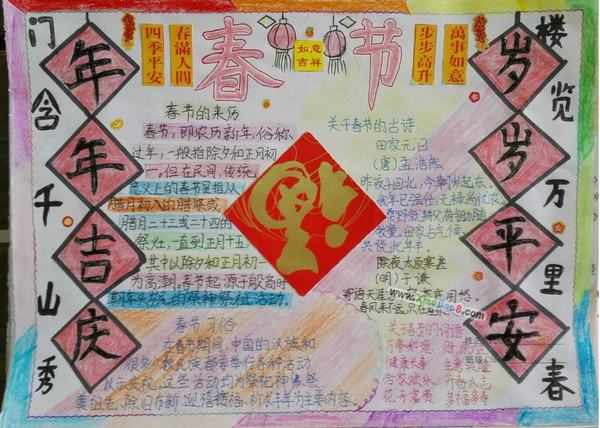 春节
四季平安
春满人间
如意
吉祥
步步高升
万事如意
门含千山秀
楼览万里春
年年吉庆
岁岁平安
春节的来历
春节，即农历新年，俗称
过年，一般指除夕和正月初
一。但在民间，传统
意义上的春节是指从
腊月初八的腊祭或
腊月二十三或二十四的
祭灶，一直到正月十五，
其中以除夕和正月初一
为高潮。春节起源于殷商时
期年头岁尾的祭神祭祖活动
关于春节的古诗
田家元日
(唐)孟浩然
昨夜斗回北，今朝岁起东。
我年已强仕，无禄尚忧农。
共说此年丰。
除夜太原寒甚
(明)于谦
寄语天涯
春风来不远，只在
春节习俗
在春节期间，中国的汉族和
很多少数民族都要举行各种活动
以示庆祝。这些活动均为祭祀神佛、祭
奠祖先、除旧布新、迎禧接福、祈求丰年为主要内容。
关于春节的词语
万事如意
健康长寿
幸福安康